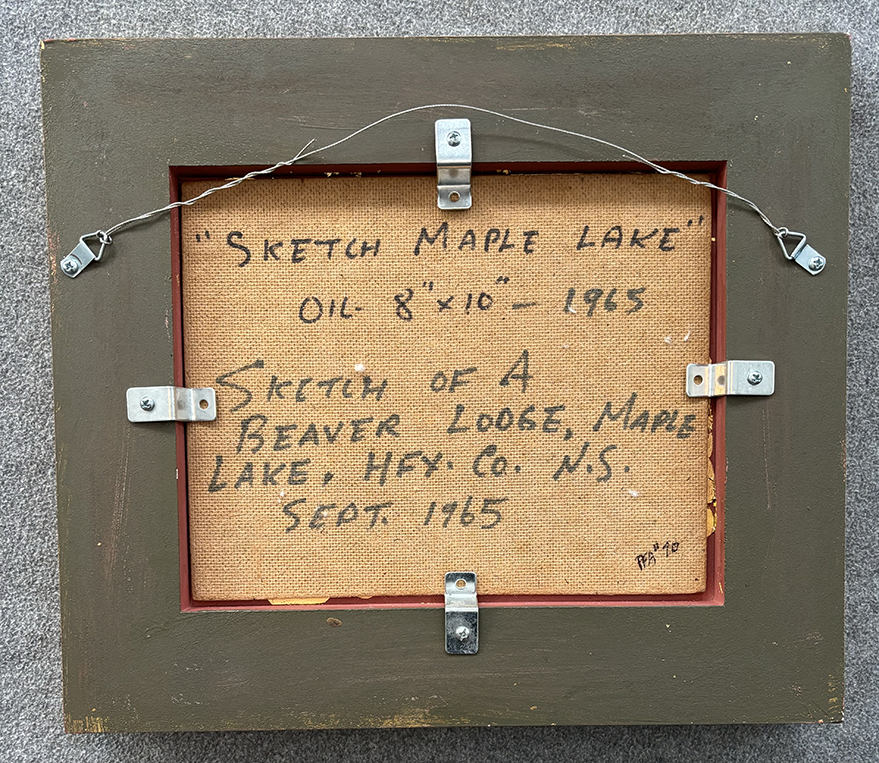 "SKETCH MAPLE LAKE"
OIL- 8"x10"- 1965
SKETCH OF A
BEAVER LODGE, MAPLE
LAKE, HFX. CO. N.S.
SEPT. 1965